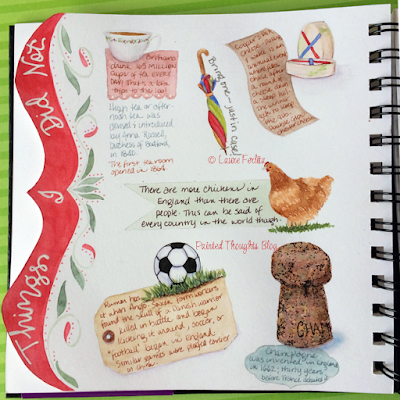 Things I Did Not
Britons
drink 165 million
cups of tea every
day! That's a lot of
trips to the loo!
High tea or after-
noon tea was
created & introduced
by Anna Russell,
Duchess of Bedford,
in 1840.
The first tea room
opened in 1864.
Bring one – just in case!
© Laure Ferlita
There are more chickens in
England than there are
people. This can be said of
every country in the world though.
Painted Thoughts Blog
Rumor has
it when Anglo Saxon farm workers
found the skull of a Danish warrior
killed in battle and began
kicking it around, soccer, or
"football" began in England
Similar games were played earlier
in China
CHAM
Champagne
was invented in England
in 1662; thirty years
before France debuted it